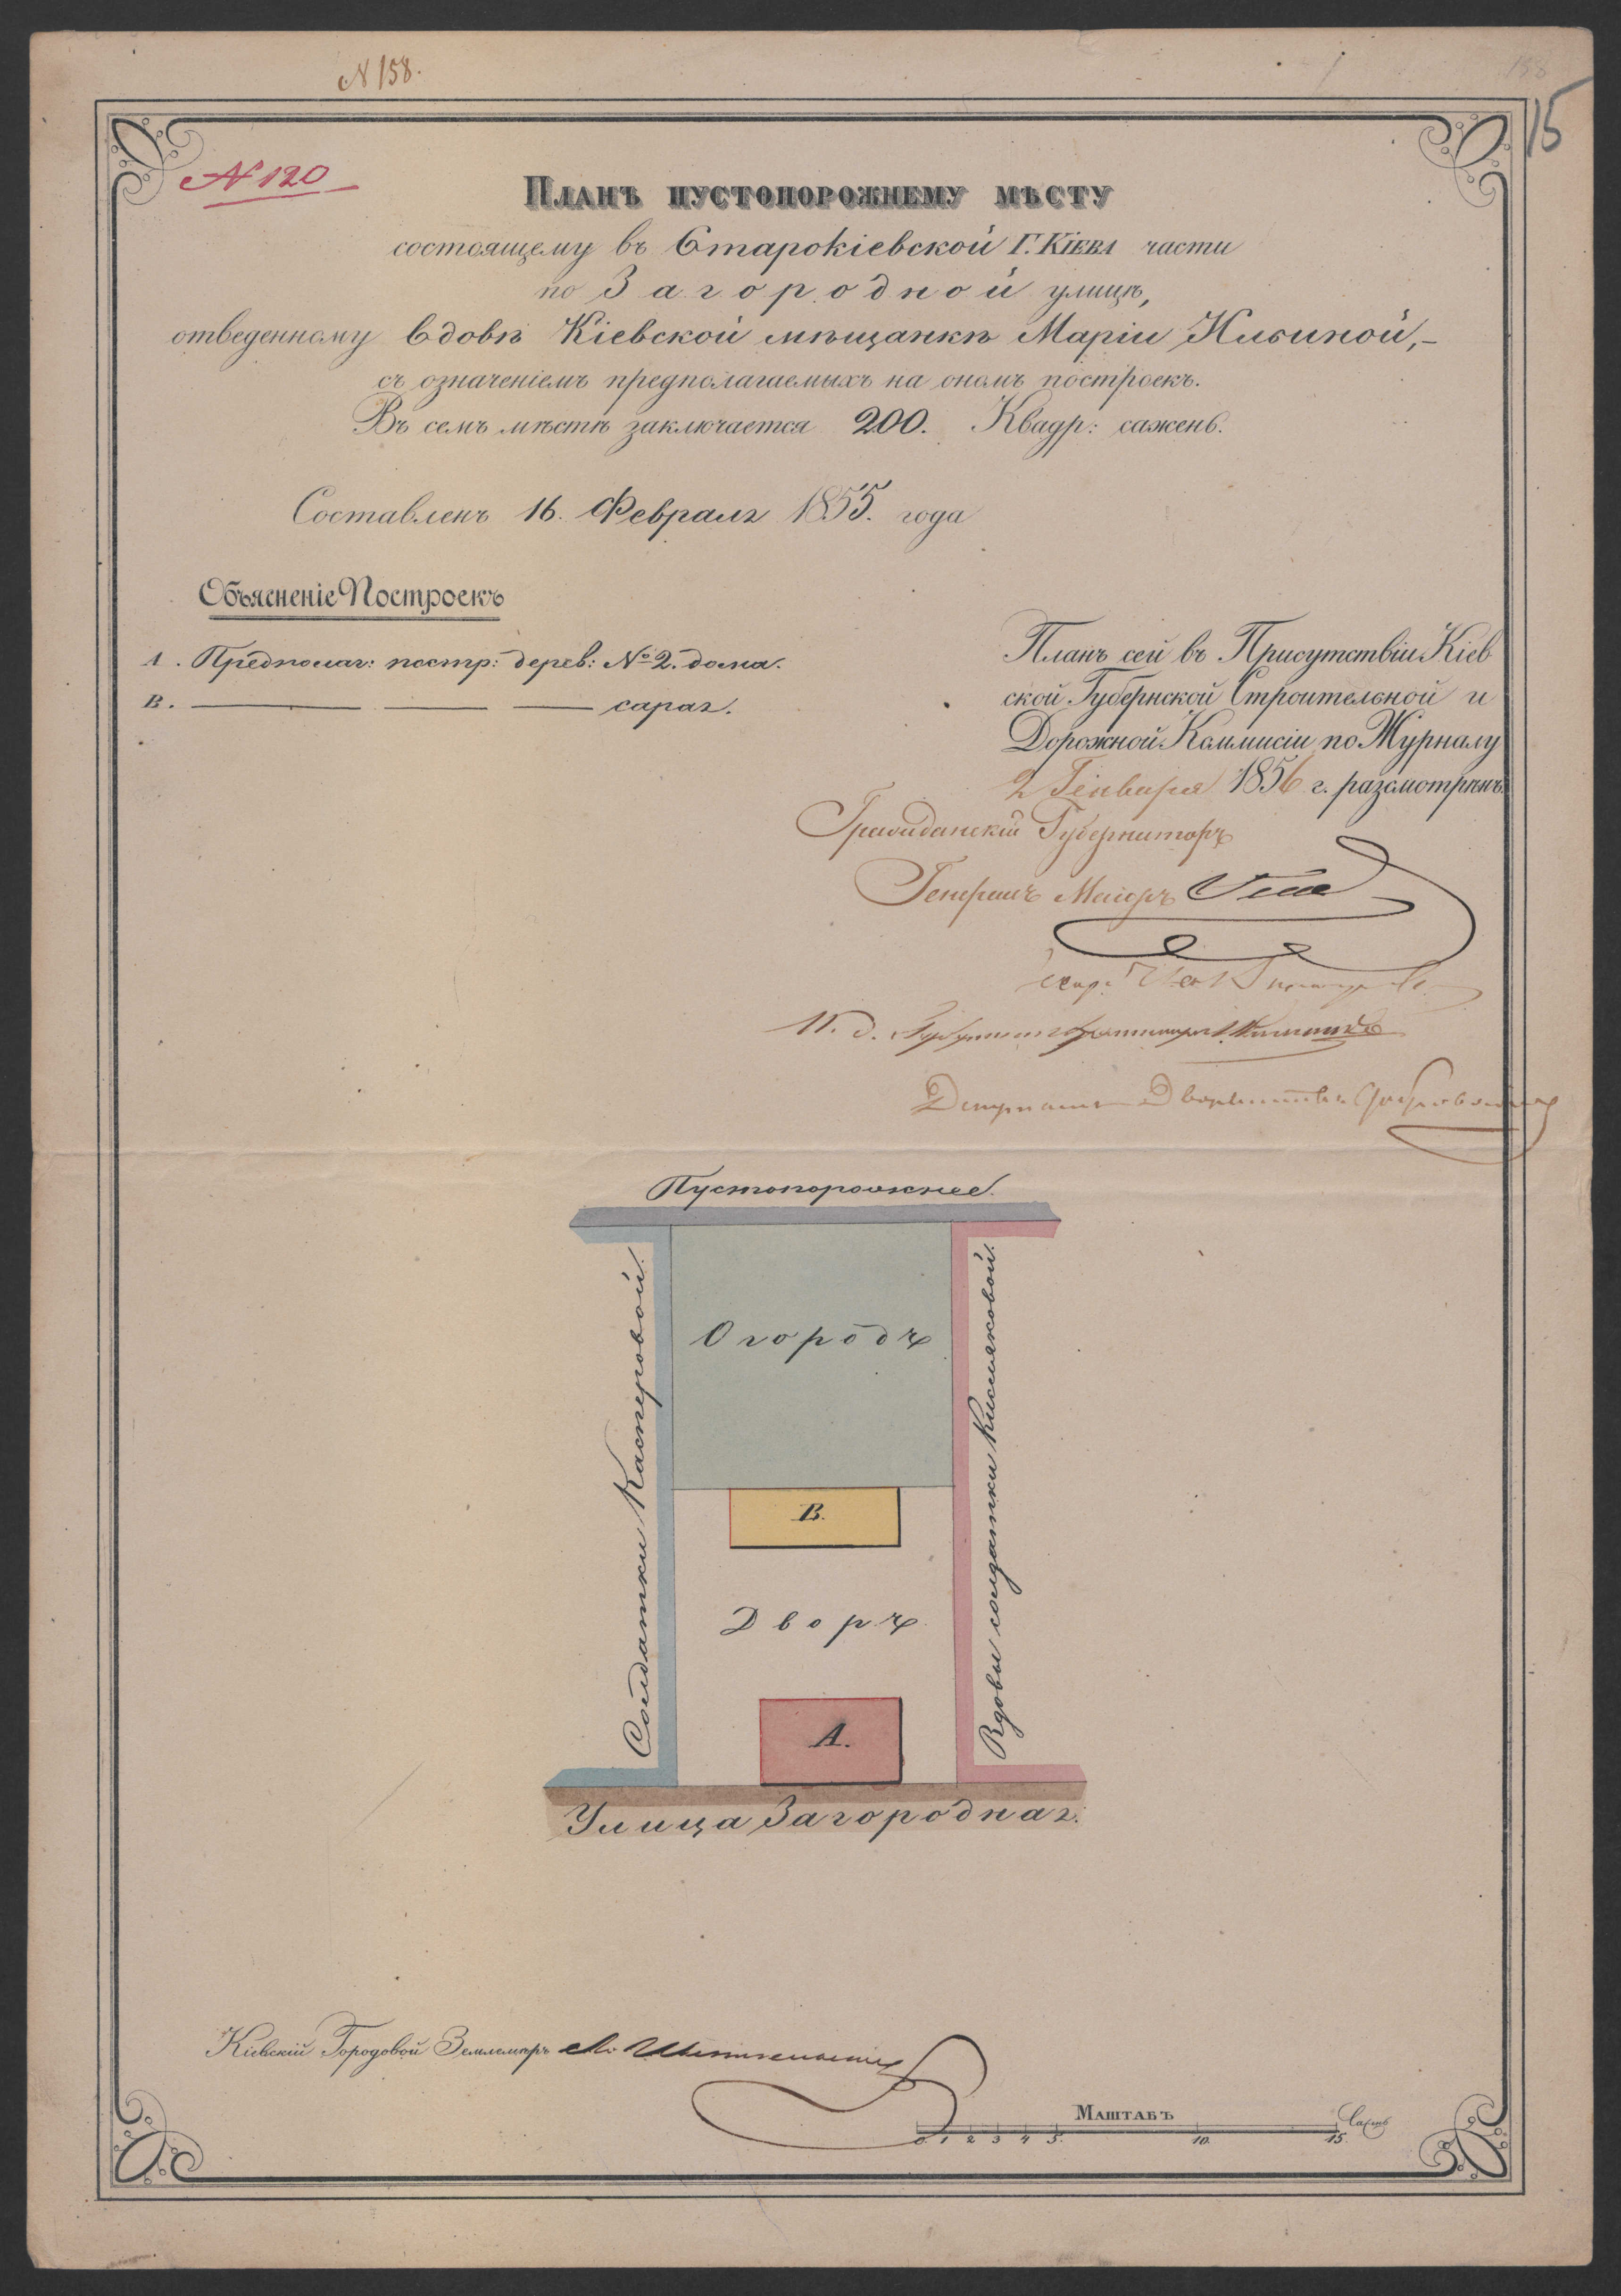 N 158.
158
15
N 120
Планъ пустопорожнему мѣсту
состоящему въ Старокіевской Г. Кіева части
по Загородной улицѣ,
отведенному Вдовѣ Кіевской мѣщанкѣ Маріи Ильиной,-
съ означеніемъ предполагаемыхъ на ономъ построекъ.
Въ семъ мѣстѣ заключается 200. Квадр: сажень.
Составленъ 16. Февраля 1855. года
Объясненіе Построекъ
А. Предполаг: постр: дерев: № 2. дома.
В. сарая.
Планъ сей въ Присутствіи Кіев
ской Губернской Строительной и
Дорожной Коммисіи по Журналу
2 Генваря 1856 г. разсмотрѣнъ
Гражданскій Губернаторъ
Генералъ Маіоръ
И. д.
Депутатъ Дворянства
Пустопорожнее.
Солдатки Касперовой.
Вдовы солдатки Кисляковой.
Огородъ
В.
Дворъ.
А.
Улица Загородная.
Кіевскій Городовой Землемѣръ
Маштабъ
0. 1 2 3 4 5. 10. 15. Саженъ